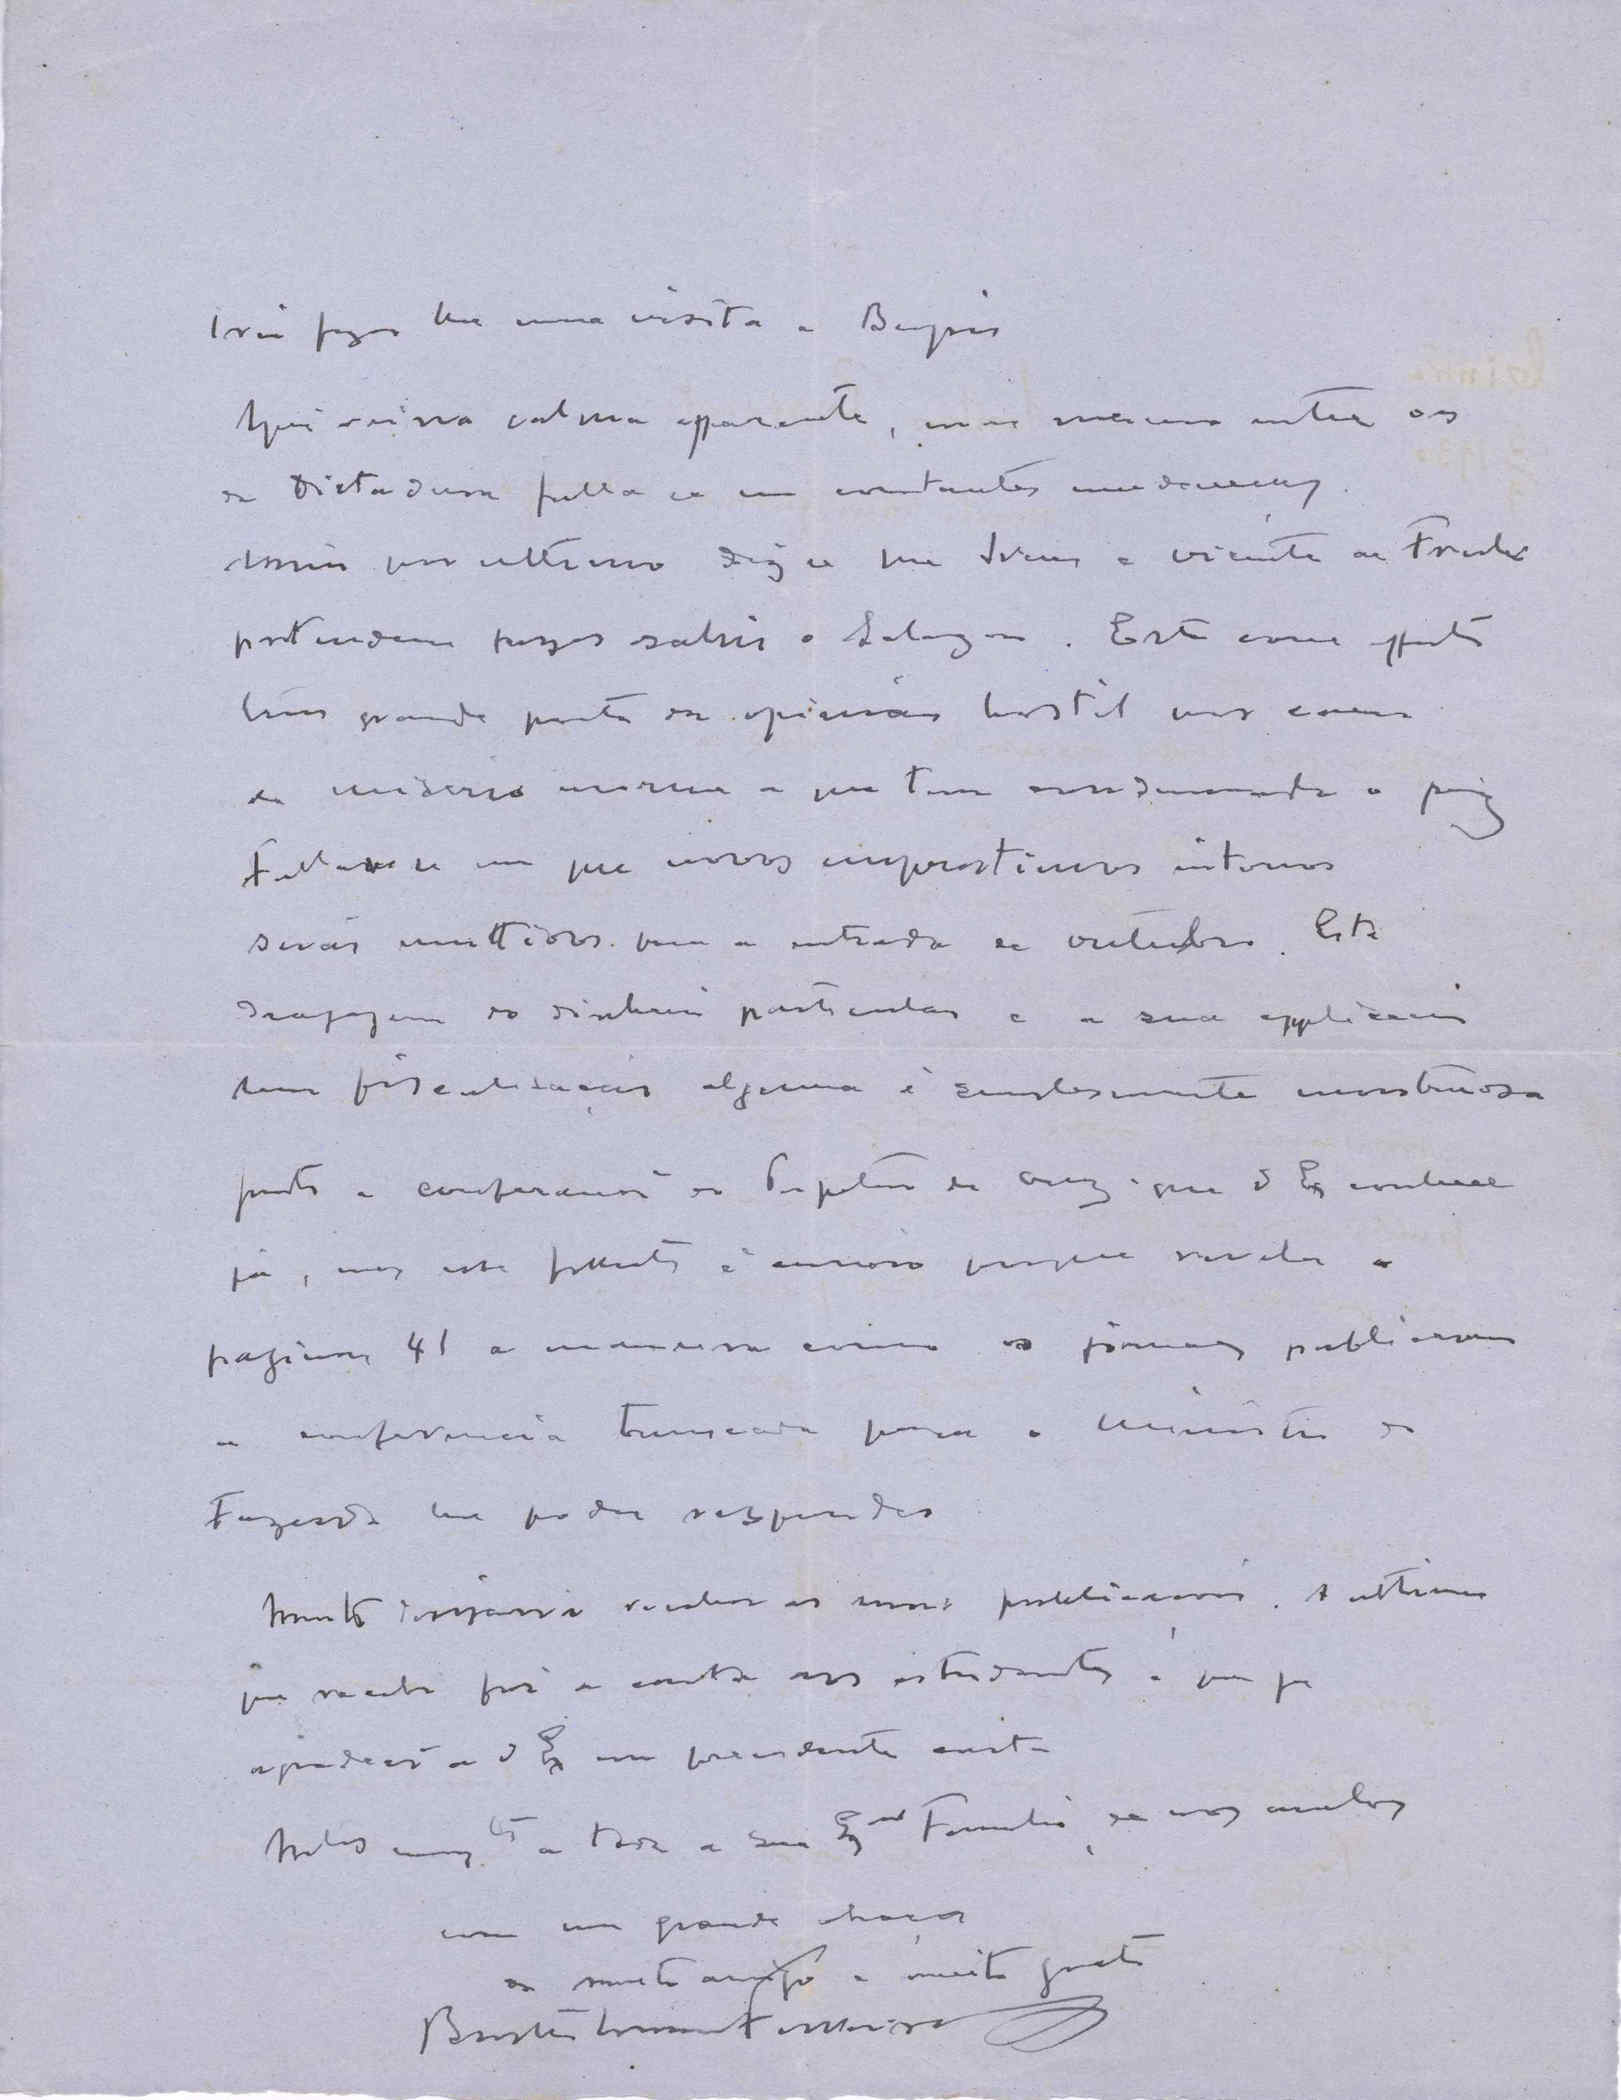 Irei fazer lhe uma visita a
Aqui reina calma apparente, mas mesmo entre os
da Dictadura falla se em constantes mudanças.
Ainda por ultimo diz se que Ivens e Vicente de Freitas
pretendem fazer sahir o Salazar. Este com effeito
tem grande parte da opinião hostil por causa
da miseria enorme a que tem condemnado o paiz
Falla se em que novos emprestimos internos
serão emittidos para a entrada de outubro. Esta
do dinheiro particular e a sua applicação
sem fiscalisação alguma é simplesmente monstruosa
junto a conferencia do da Cruz que V Ex conhece
já, mas este folheto é curioso porque revela a
paginas 41 a maneira como os jornaes publicaram
a conferencia truncada para o Ministro da
Fazenda lhe poder responder
Muito desejaria receber as suas publicações. A ultima
que recebi foi a carta aos estudantes e que já
agradeci a V Ex em precedente carta
a toda a sua Exma Familia, de nos ambos
com um grande abraço
do muito amigo e muito grato